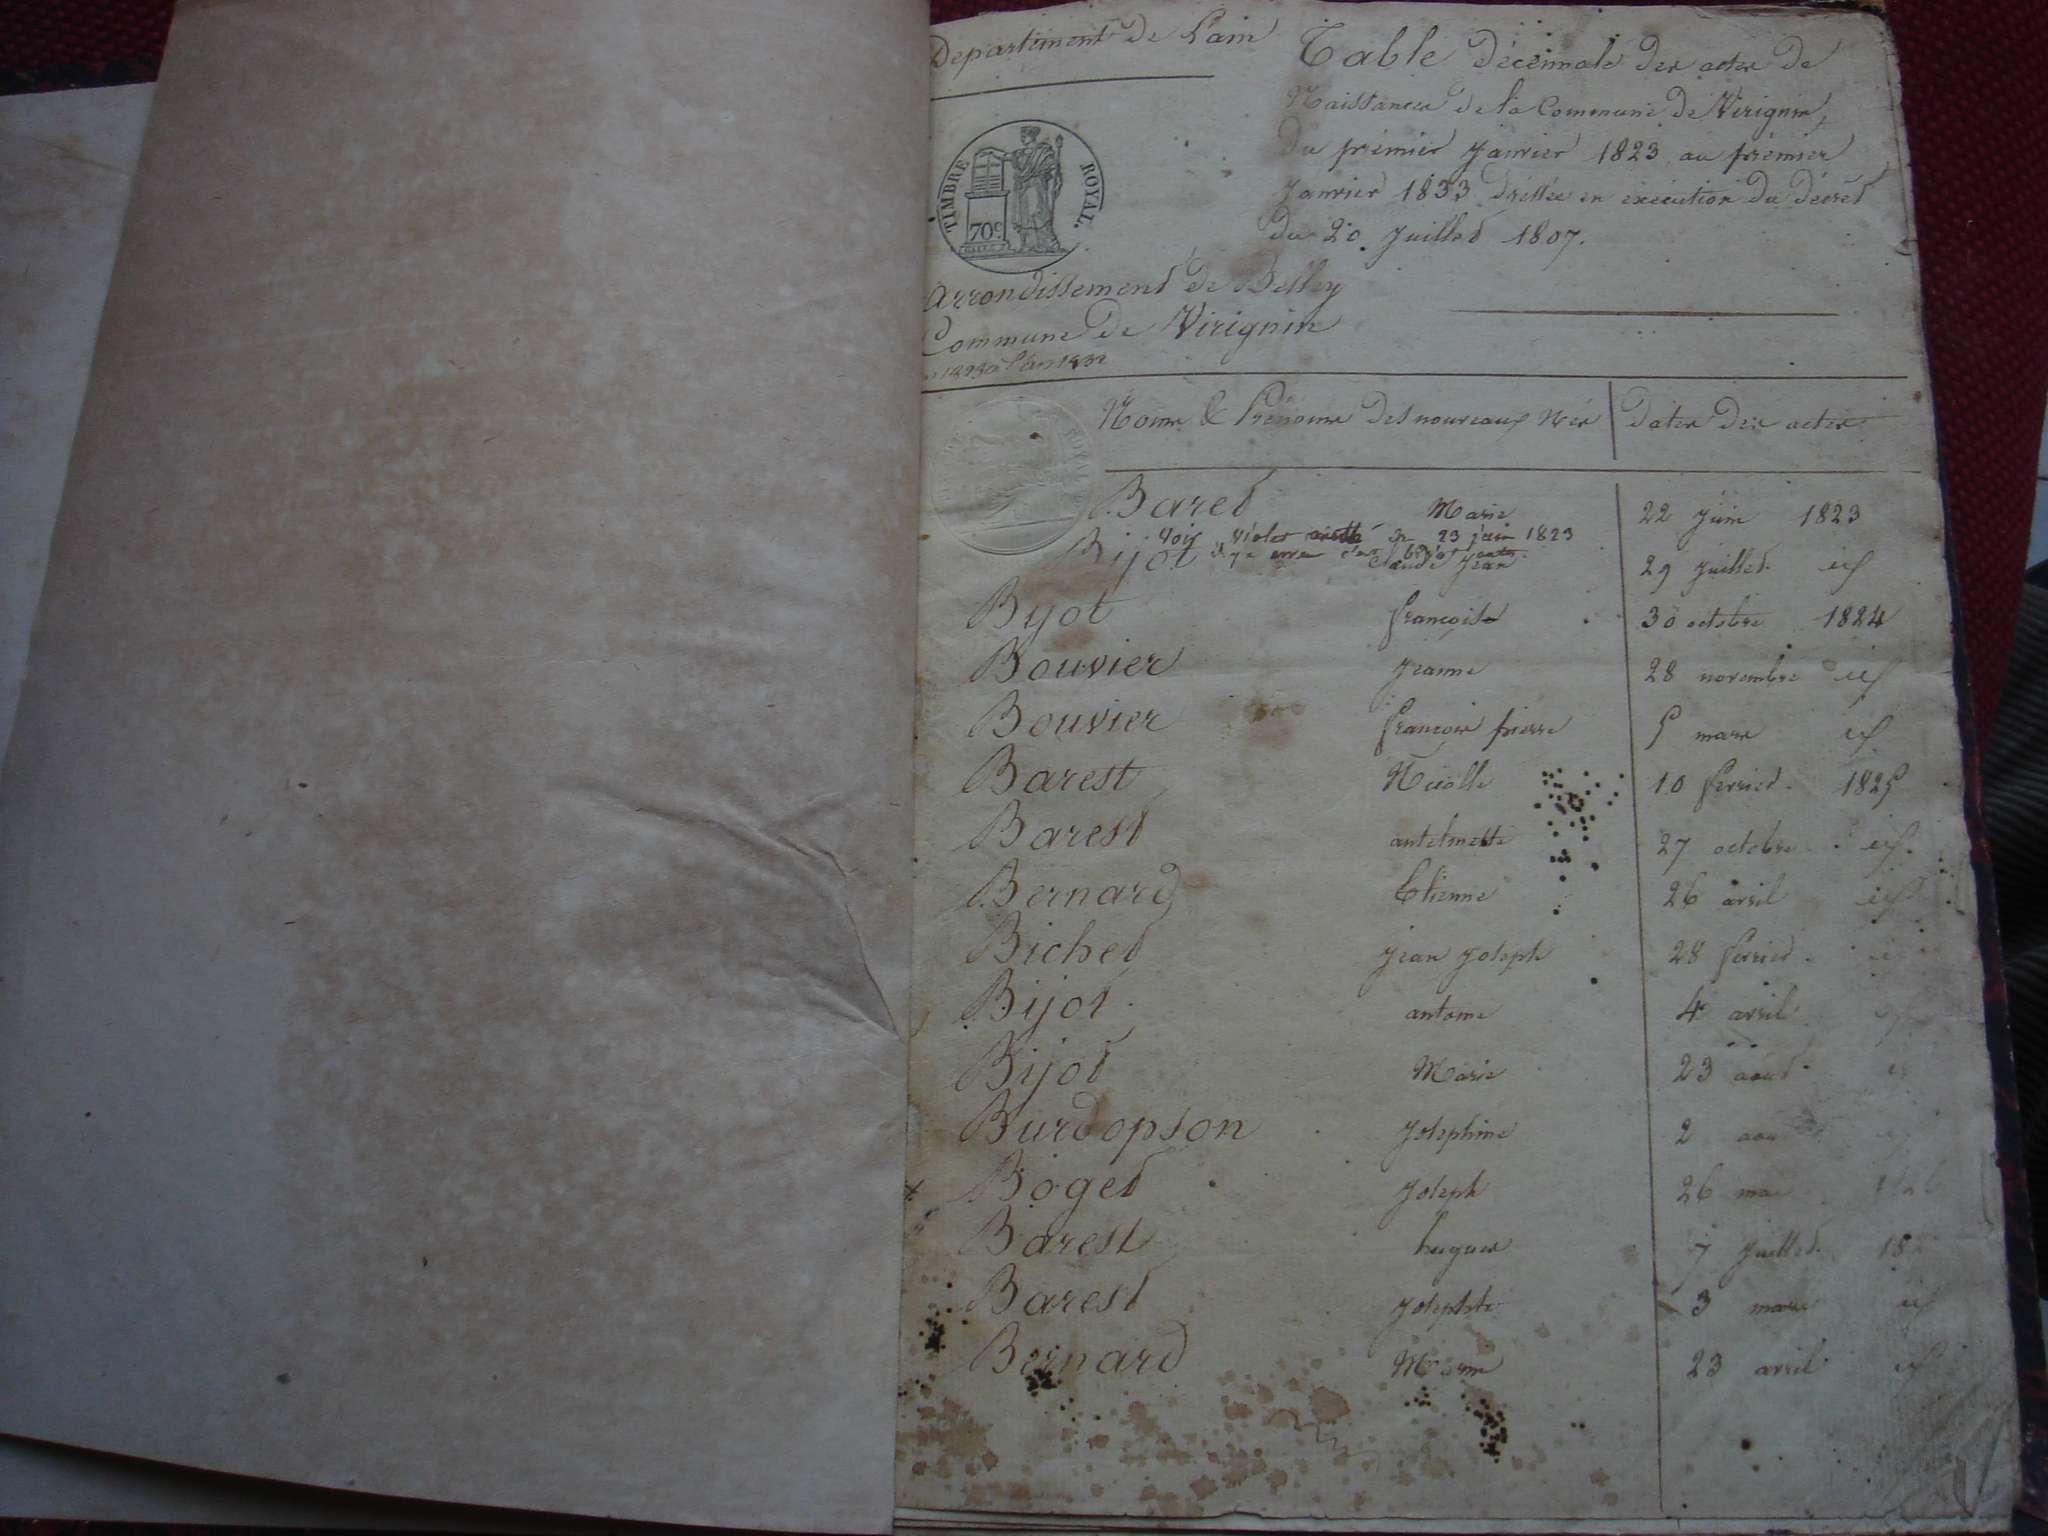 Département de L'ain
Table décennale des actes de
Naissances de la Commune de Virignin,
du premier Janvier 1823 au premier
Janvier 1833 dressée en exécution du décret
du 20 Juillet 1807.
TIMBRE ROYAL.
70c
Arrondissement de Belley
Commune de Virignin
1823 à l'an 1832
Noms & Prénoms des nouveaux Nés Dates des actes
Baret Marie 22 juin 1823
Voir Violet 23 juin 1823
Bijot Claude Jean 29 Juillet id
Byot françoise 30 octobre 1824
Bouvier Jeanne 28 novembre id
Bouvier françois pierre 5 mars id
Barest Nicolle 10 fevrier 1825
Barest antelmette 27 octobre id
Bernard Etienne 26 avril id
Bichet Jean Joseph 28 fevrier id
Bijot antoine 4 avril id
Bijot Marie 23 août
Burdopson Josephine 2 aou
Boget Joseph 26 mai
Barest hugues 7 Juillet 18
Barest Josephte 3 mars id
Bernard Marie 23 avril id